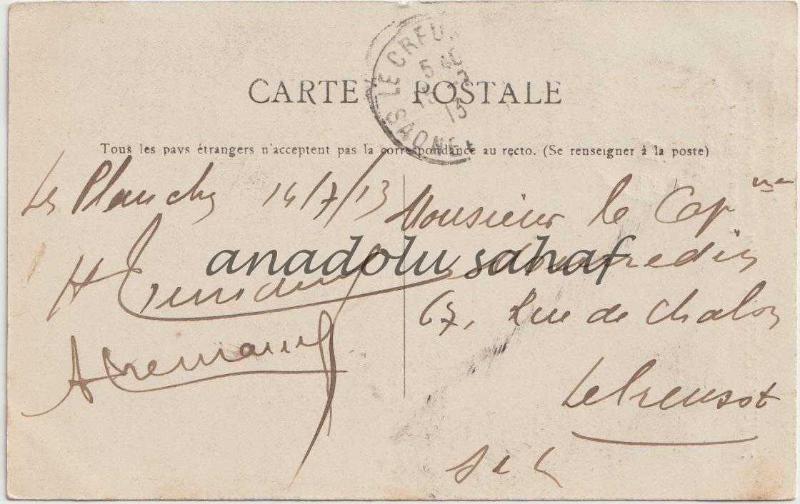 CARTE POSTALE
LE CREU
5
13
SAONE
Tous les pays étrangers n'acceptent pas la correspondance au recto. (Se renseigner à la poste)
Les Planches 14/7/13
Monsieur le Cap ne
anadolu sahaf
67, Rue de Chalon
Le Creusot
S & L